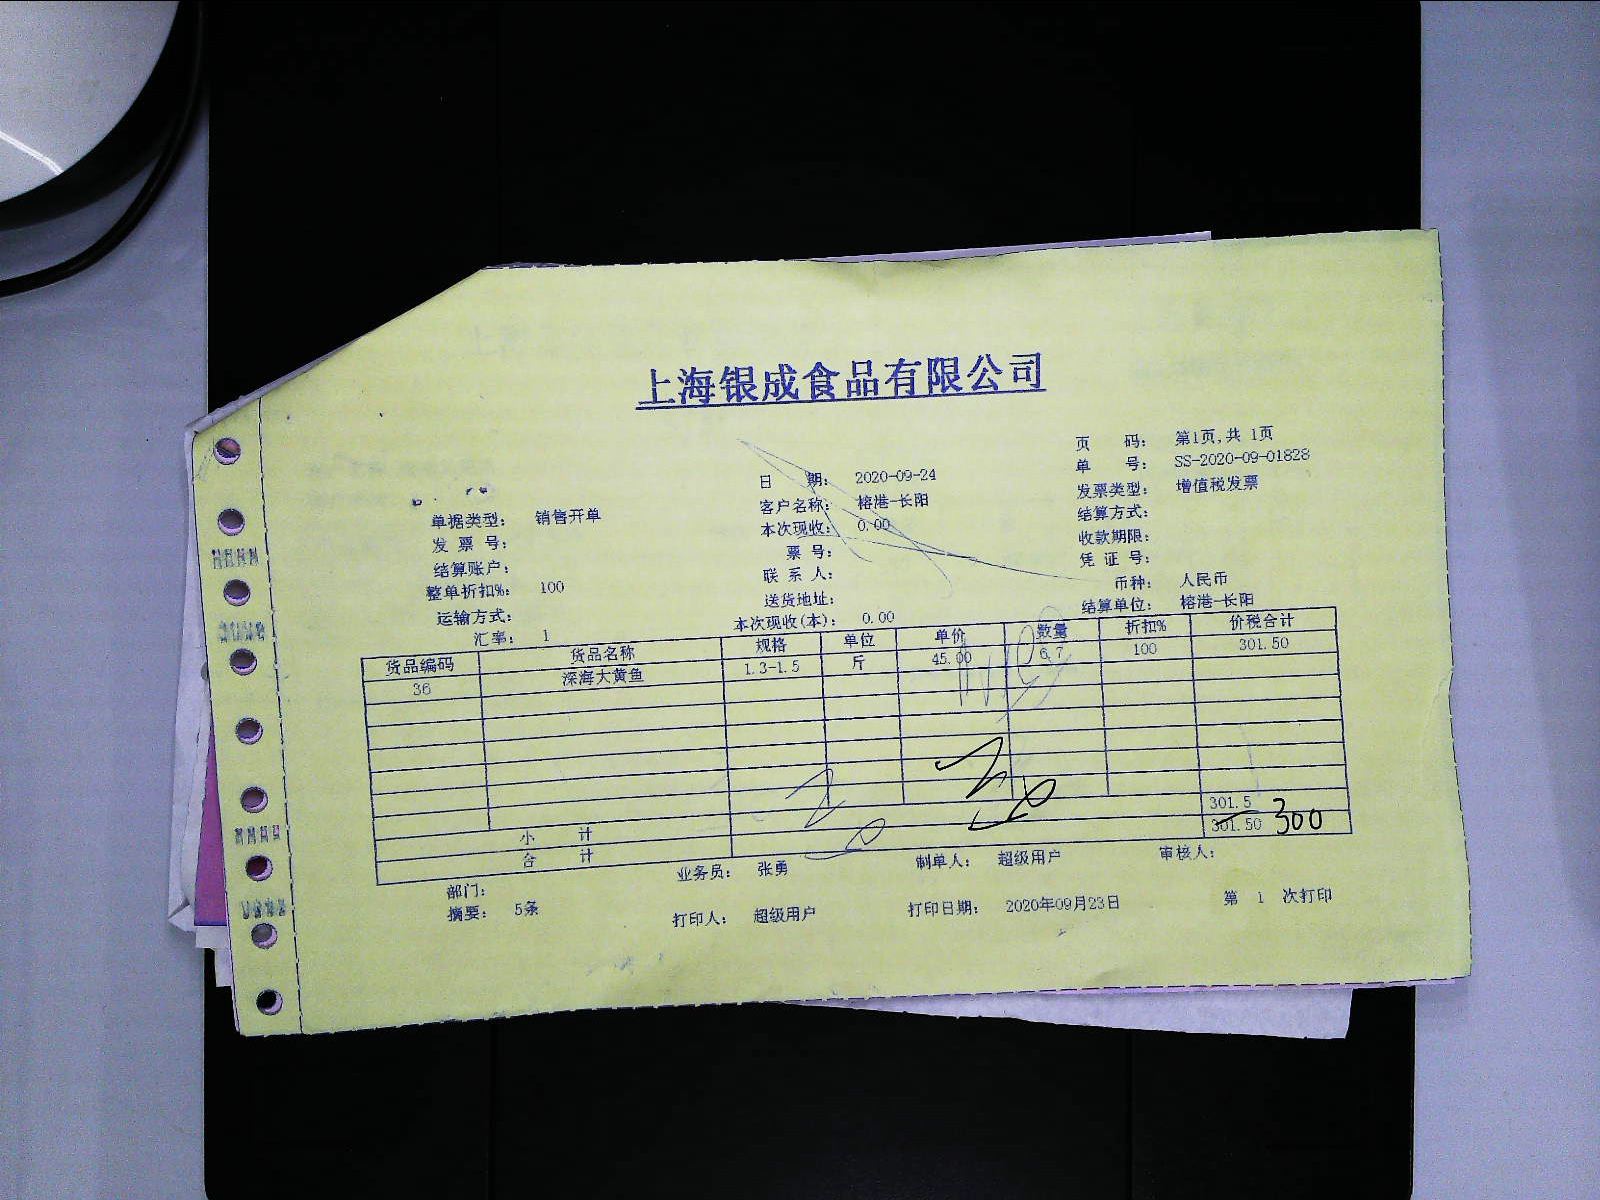 上海银成食品有限公司
页 码： 第1页,共 1页
日 期： 2020-09-24 单 号： SS-2020-09-01828
单据类型： 销售开单 客户名称： 榕港-长阳 发票类型： 增值税发票
发 票 号： 本次现收： 0.00 结算方式：
结算账户： 票 号： 收款期限：
整单折扣%： 100 联 系 人： 凭 证 号：
运输方式： 送货地址： 币种： 人民币
汇率： 1 本次现收(本)： 0.00 结算单位： 榕港-长阳
货品编码 货品名称 规格 单位 单价 数量 折扣% 价税合计
36 深海大黄鱼 1.3-1.5 斤 45.00 6.7 100 301.50
小 计 301.5
合 计 301.50 300
部门： 业务员： 张勇 制单人： 超级用户 审核人：
摘要： 5条 打印人： 超级用户 打印日期： 2020年09月23日 第 1 次打印